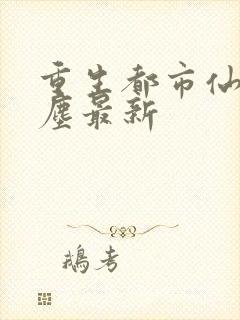 重生都市仙
塵最新
鵝考